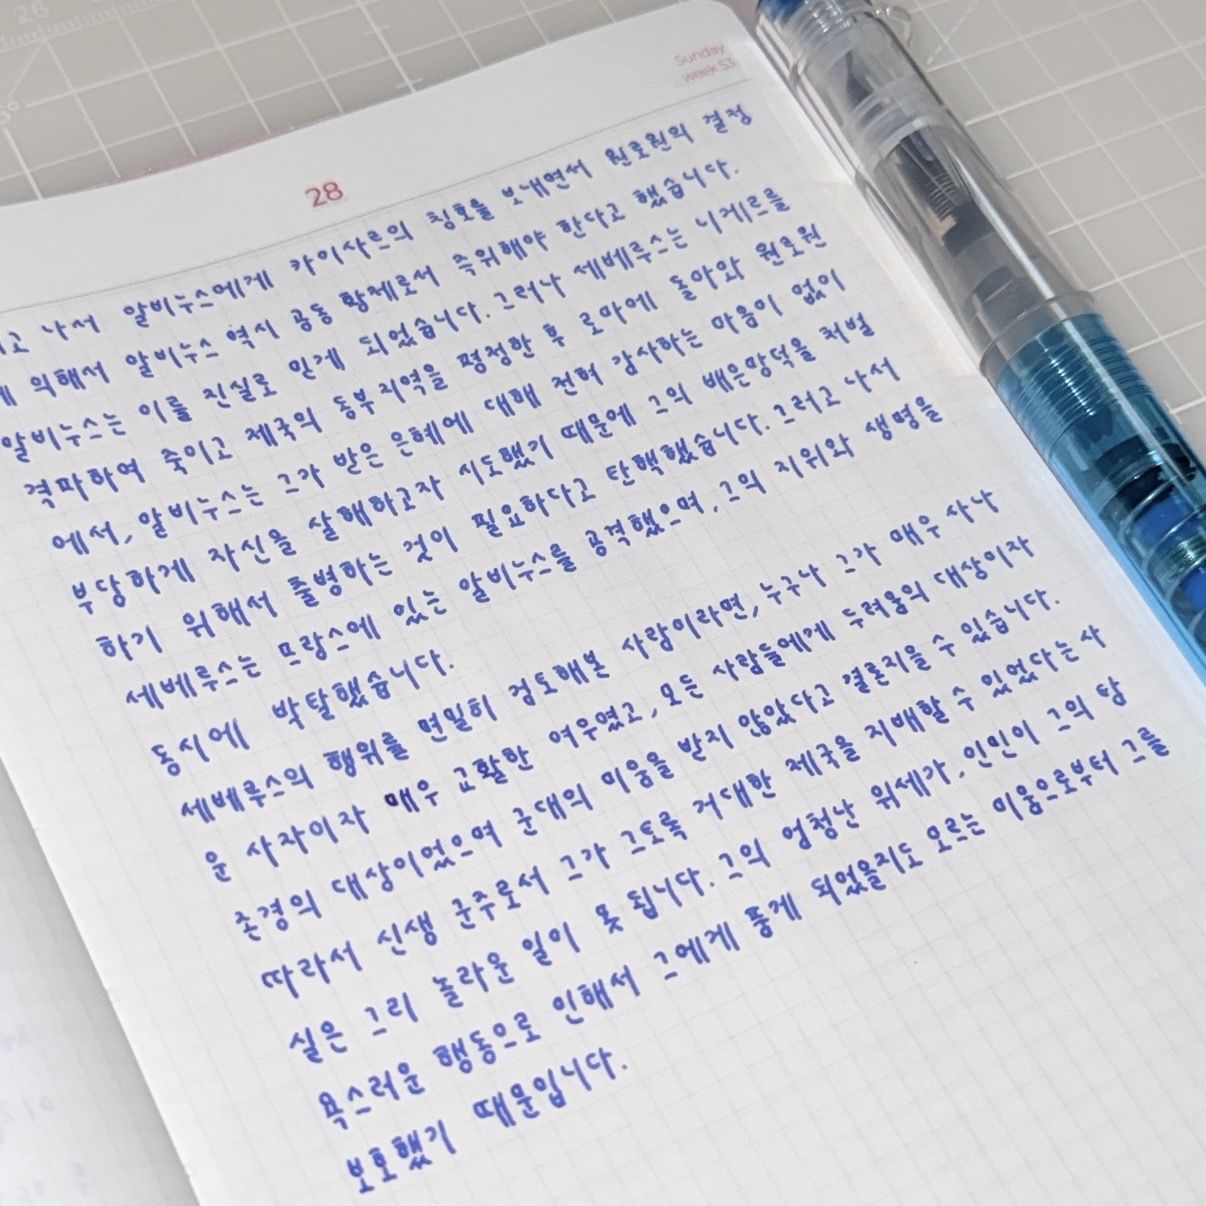 Sunday
week 53
28
고 나서 알비누스에게 카이사르의 칭호를 보내면서 원로원의 결정
에 의해서 알비누스 역시 공동 황제로서 즉위해야 한다고 했습니다.
알비누스는 이를 진실로 믿게 되었습니다. 그러나 세베루스는 니게르를
격파하여 죽이고 제국의 동부지역을 평정한 후 로마에 돌아와 원로원
에서, 알비누스는 그가 받은 은혜에 대해 전혀 감사하는 마음이 없이
부당하게 자신을 살해하고자 시도했기 때문에 그의 배은망덕을 처벌
하기 위해서 출병하는 것이 필요하다고 탄핵했습니다. 그러고 나서
세베루스는 프랑스에 있는 알비누스를 공격했으며, 그의 지위와 생명을
동시에 박탈했습니다.
세베루스의 행위를 면밀히 검토해본 사람이라면, 누구나 그가 매우 사나
운 사자이자 매우 교활한 여우였고, 모든 사람들에게 두려움의 대상이자
존경의 대상이었으며 군대의 미움을 받지 않았다고 결론지을 수 있습니다.
따라서 신생 군주로서 그가 그토록 거대한 제국을 지배할 수 있었다는 사
실은 그리 놀라운 일이 못 됩니다. 그의 엄청난 위세가, 인민이 그의 탐
욕스러운 행동으로 인해서 그에게 품게 되었을지도 모르는 미움으로부터 그를
보호했기 때문입니다.